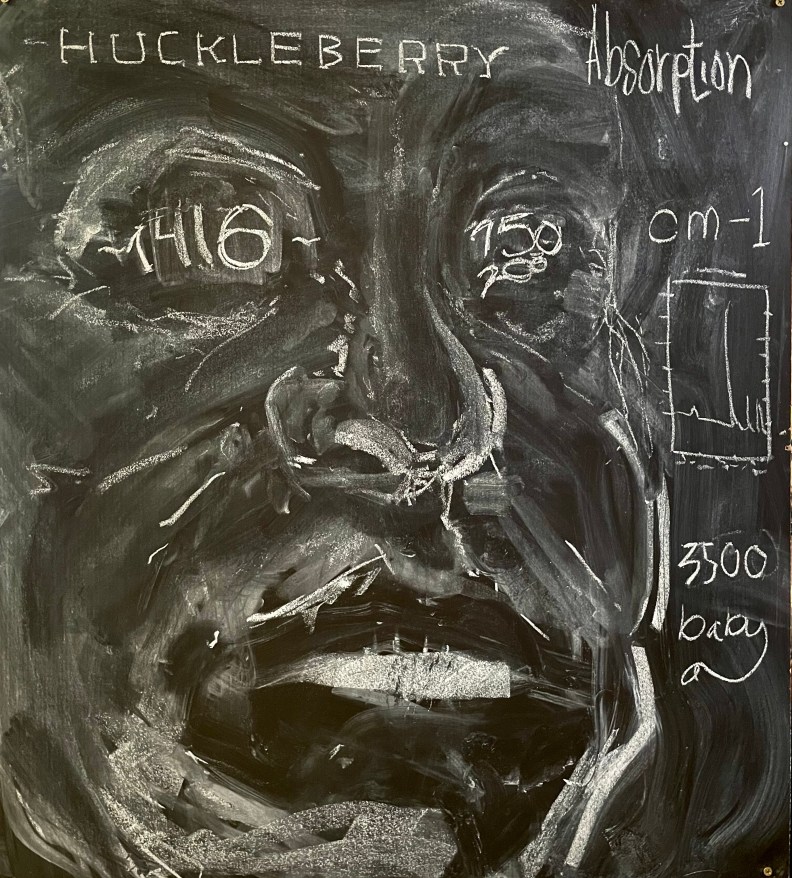 HUCKLEBERRY
Absorption
~1416~
150
200
cm-1
1
3500
baby